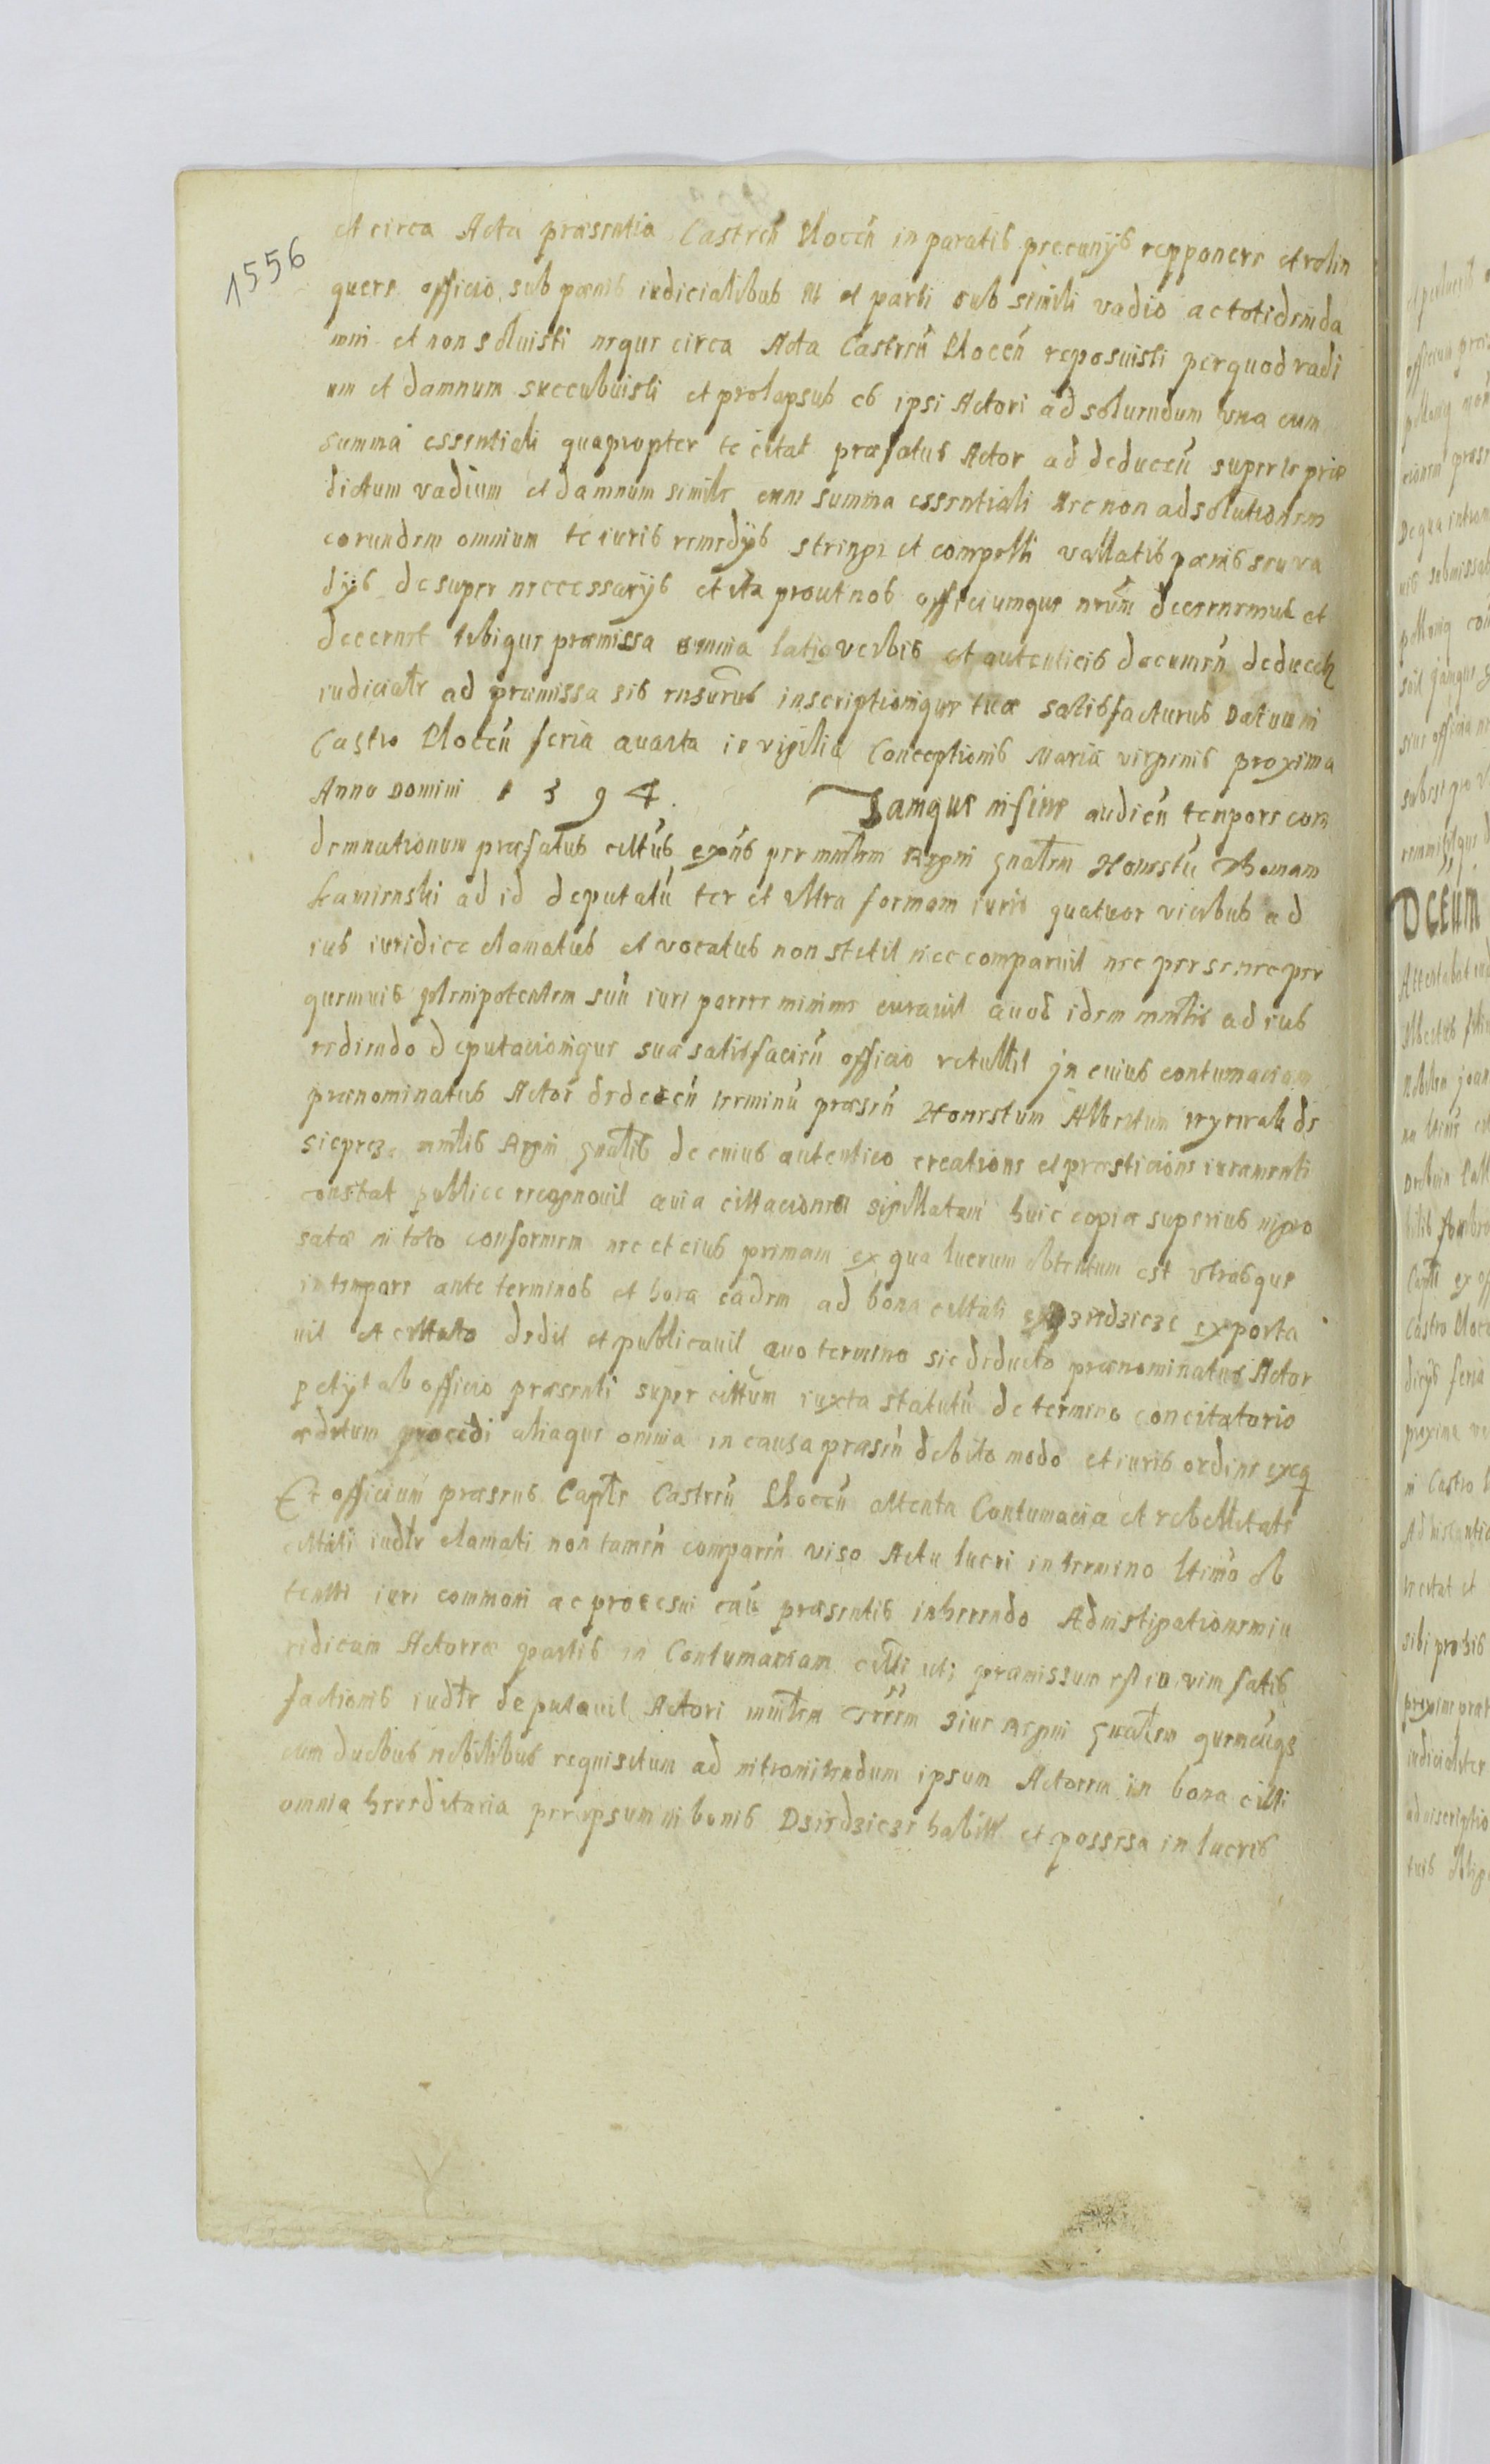 1556
et circa Acta præsentia Castren̄ Plocen̄ in paratis peccunijs repponere et relin
quere officio sub pœnis iudicialibus et parti sub simili vadio ac totidem da
mni et non soluisti neque circa Acta Castren̄ Plocen̄ reposuisti per quod vadi
um et damnum succubuisti et prolapsus es ipsi Actori ad soluendum vna cum
summa essentiali quapropter te citat præfatus Actor ad deducen̄ super te præ
dictum vadium et damnum simile cum summa essentiali Nec non ad solutionem
eorundem omnium te iuris remedijs stringi et compelli vallatis pœnis seu va
dijs de super neccessarijs et ita prout nos officiumque nrūm decernemus et
decernet tibique præmissa omnia latio verbis et autenticis documen̄ deducet
iudicialr̄ ad præmissa sis rn̄surus inscriptionique tuæ satisfacturus Datum in
Castro Plocen̄ feria quarta in vigilia Conceptionis Mariæ virginis proxima
Anno Domini 1594. Jamque in fine audien̄ tempore con
demnationum præfatus cittūs exn̄s per mn̄lem Regni gn̄alem Honestū Thomam
Kamienski ad id deputatū ter et vltra formam iuris quatuor vicibus ad
ius iuridice clamatus et vocatus non stetit nec comparuit nec per se nec per
quemuis plenipotentem suū iuri parere minime curauit Quod idem mn̄lis ad ius
redeundo deputacionique suæ satisfacien̄ officio retullit jn cuius contumaciam
prænominatus Actor deducen̄ terminū præsen̄ Honestum Albertum de
Siecprez mn̄lis Regni gn̄alis de cuius autentico creationis et præsticionis iuramenti
constat publice recognouit quia cittacionem sigillatam huic copiæ superius ingro
satæ in toto conformem nec et eius primam ex qua lucrum obtentum est vtrasque
in tempore ante terminos et hora eadem ad bona cittati Dzierdzicze exporta
uit et cittato dedit et publicauit quo termino sic deducto prænominatus Actor
petijt ab officio præsenti super cittūm iuxta statutū de termino concitatorio
ædetum procedi aliaque omnia in causa præsen̄ debito modo et iuris ordine exeq
Et officium præsens Captlē Castren̄ Plocen̄ attenta Contumacia et rebellitate
cittati iudlr̄ clamati non tamen̄ comparen̄ viso Actu lucri in termino ltimō ob
tenti iuri communi ac processui caū præsentis inherendo Ad instigationem iu
ridicam Actoreæ partis in Contumaciam citti uti præmissum est in vim satis
factionis iudlr̄ deputauit Actori mn̄lem Trrēm siue Regni gn̄alem quemcūqe
cum duobus nobilibus requisitum ad intromittendum ipsum Actorem in bona citti
omnia hereditaria per ipsum in bonis Dzierdzicze habitt et possesa in lucris